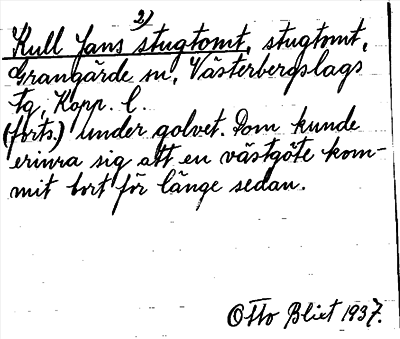 2)
Kull Jans stugtomt, stugtomt,
Grangärde sn, Västerbergslags
tg, Kopp. l.
(forts.) under golvet. Dom kunde
erinra sig att en västgöte kom-
mit bort för länge sedan.
Otto Blixt 1937.